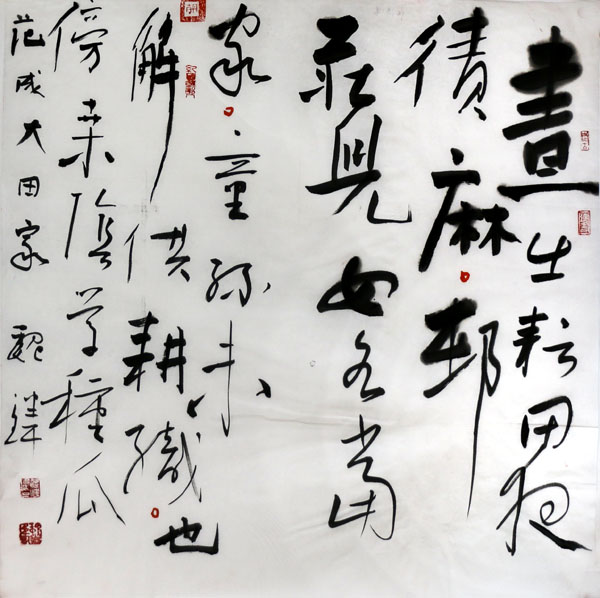 晝出耘田夜
績麻邨
莊兒女各當
家童孫未
解供耕織也
傍桒陰學種瓜
范成大田家 魏